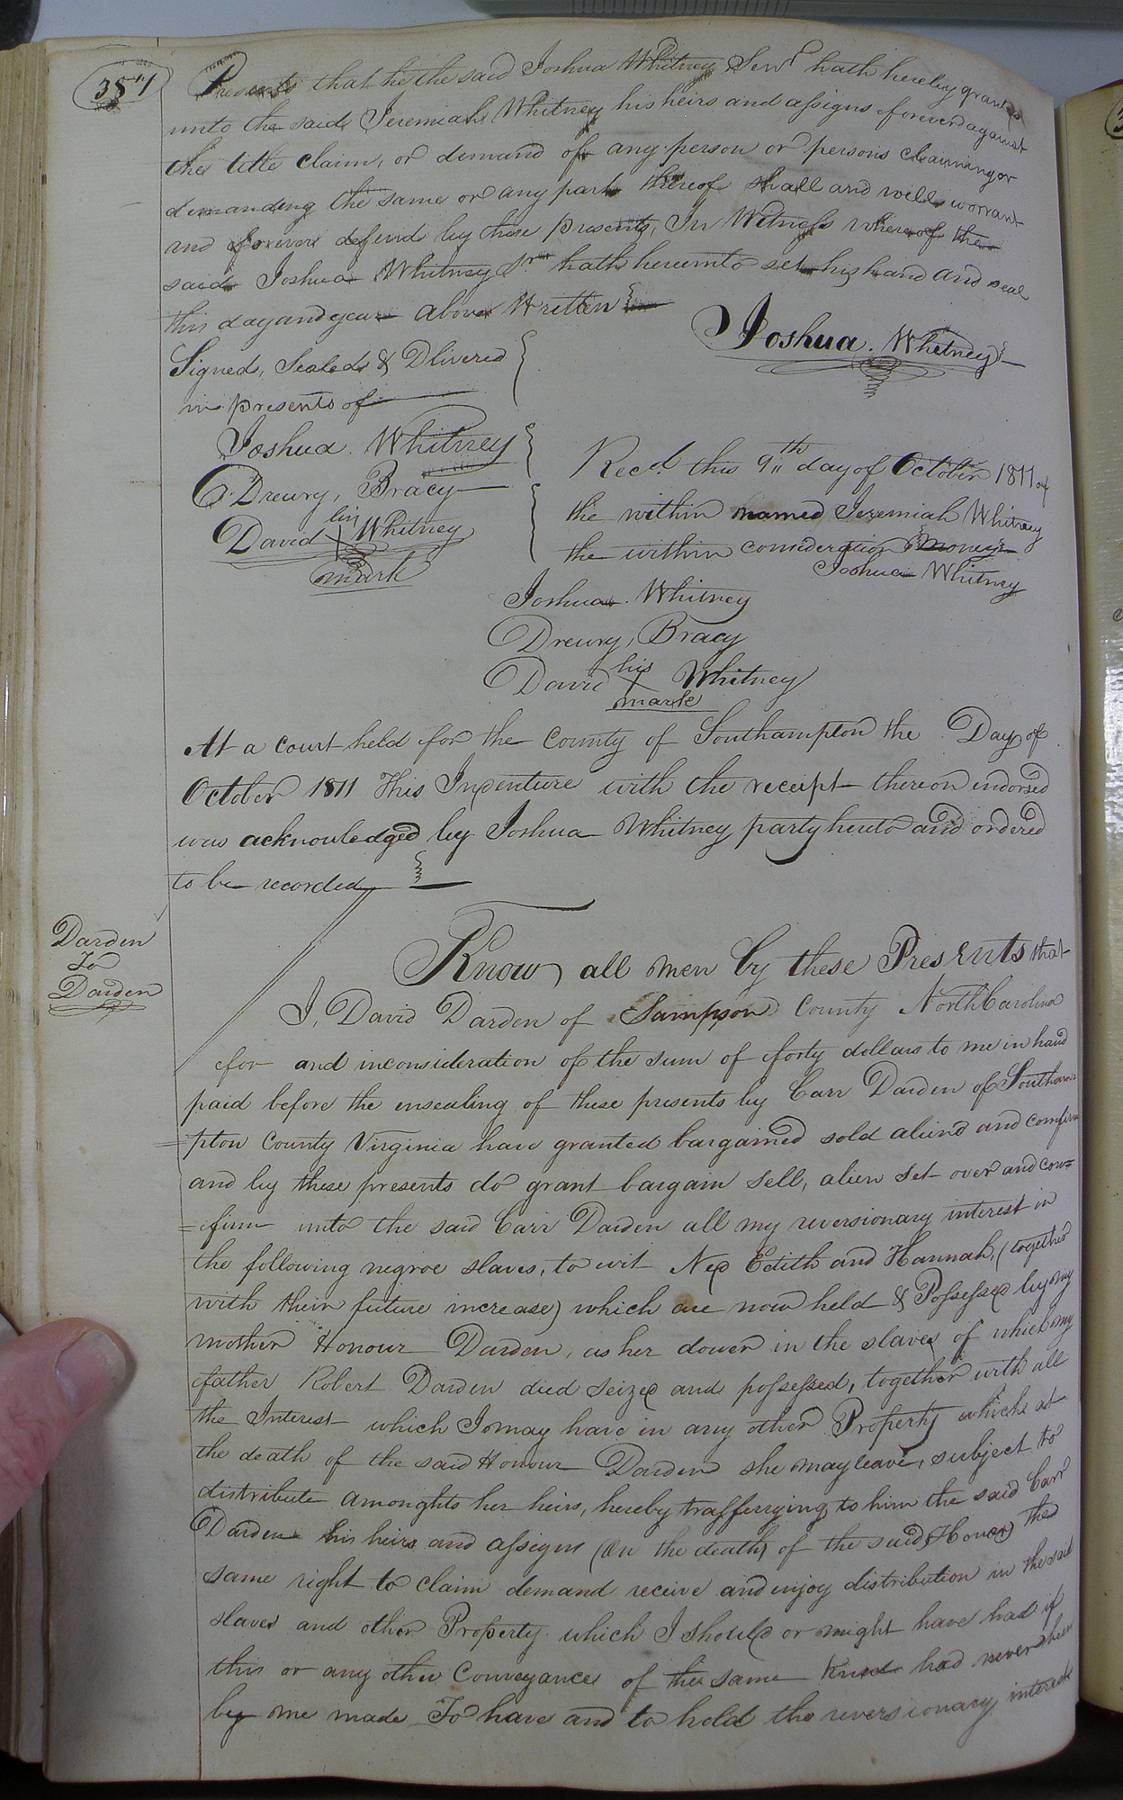 387
Presents that he the said Joshua Whitney Senr. hath hereby granted
unto the said Jeremiah Whitney his heirs and assigns forever against
the title claim, or demand of any person or persons claiming or
demanding the same or any part thereof shall and will warrant
and forever defend by these presents, In Witness whereof the
said Joshua Whitney Snr hath hereunto set his hand and seal
this day and year above Written
Joshua. Whitney
Signed, Sealed & Dlivered
in presents of
Joshua. Whitney
Drewry, Bracy
his
David X Whitney
mark
Recd. this 9th day of October 1811 of
the within named Jeremiah Whitney
the within consideration Money
Joshua Whitney
Joshua. Whitney
Drewry, Bracy
his
David X Whitney
mark
At a court held for the county of Southampton the Day of
October 1811 This Indenture with the receipt thereon endorsed
was acknowledged by Joshua Whitney party hereto and ordered
to be recorded
Darden
To
Darden
Know all men by these Presents that
I, David Darden of Sampson County North Carolina
for and inconsideration of the sum of forty dollars to me in hand
paid before the ensealing of these presents by Carr Darden of Southam
=pton County Virginia have granted bargained sold aliend and confirm
and by these presents do grant bargain sell, alien set over and con=
=firm unto the said Carr Darden all my reversionary interest in
the following negroe slaves, to wit Ned Edith and Hannah, (together
with their future increase) which are now held & Possessed by my
mother Honour Darden, as her dower in the slaves of which my
father Robert Darden died seized and possessed, together with all
the Interest which I may have in any other Property which at
the death of the said Honour Darden she may leave, subject to
distribute amonghts her heirs, hereby trafferrying to him the said Carr
Darden his heirs and assigns (on the death of the said Honor) the
same right to claim demand receive and enjoy distribution in the said
slaves and other Property which I should or might have had if
this or any other Conveyance of the same kind had never been
by me made To have and to hold the reversionary interest